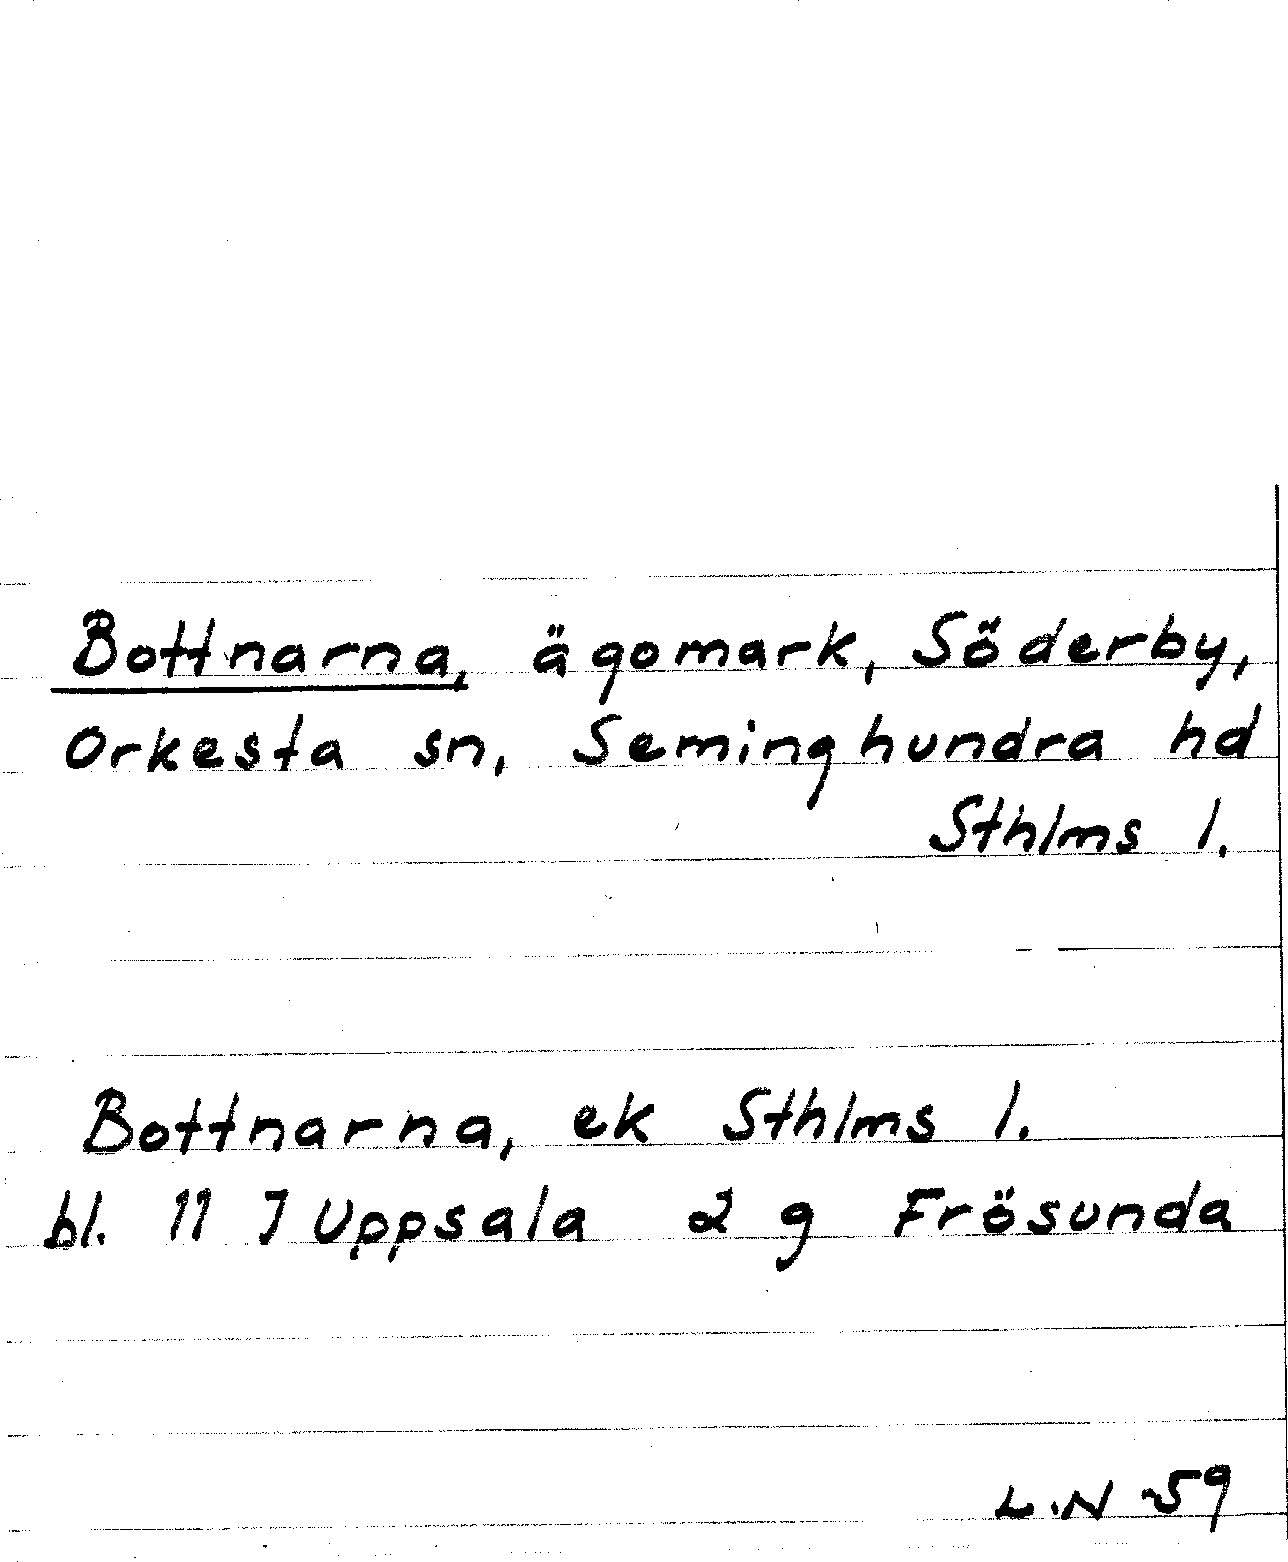 Bottnarna, ägomark, Söderby,
Orkesta sn, Seminghundra hd
Sthlms l.
Bottnarna, ek Sthlms l.
bl. 11 I Uppsala 2 g Frösunda
L.N -59